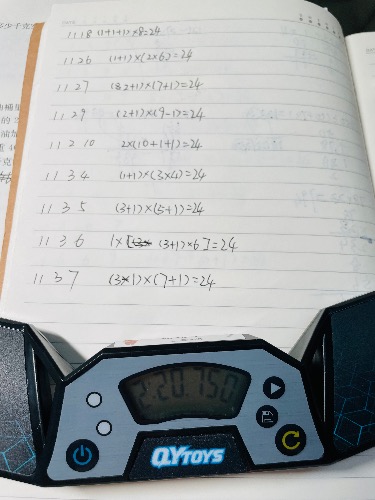 1 1 1 8 (1+1+1)×8=24
1 1 2 6 (1+1)×(2×6)=24
1 1 2 7 (2+1)×(7+1)=24
1 1 2 9 (2+1)×(9-1)=24
1 1 2 10 2×(10+1+1)=24
1 1 3 4 (1+1)×(3×4)=24
1 1 3 5 (3+1)×(5+1)=24
1 1 3 6 1×[(3+1)×6]=24
1 1 3 7 (3×1)×(7+1)=24
2:20.750
QYTOYS